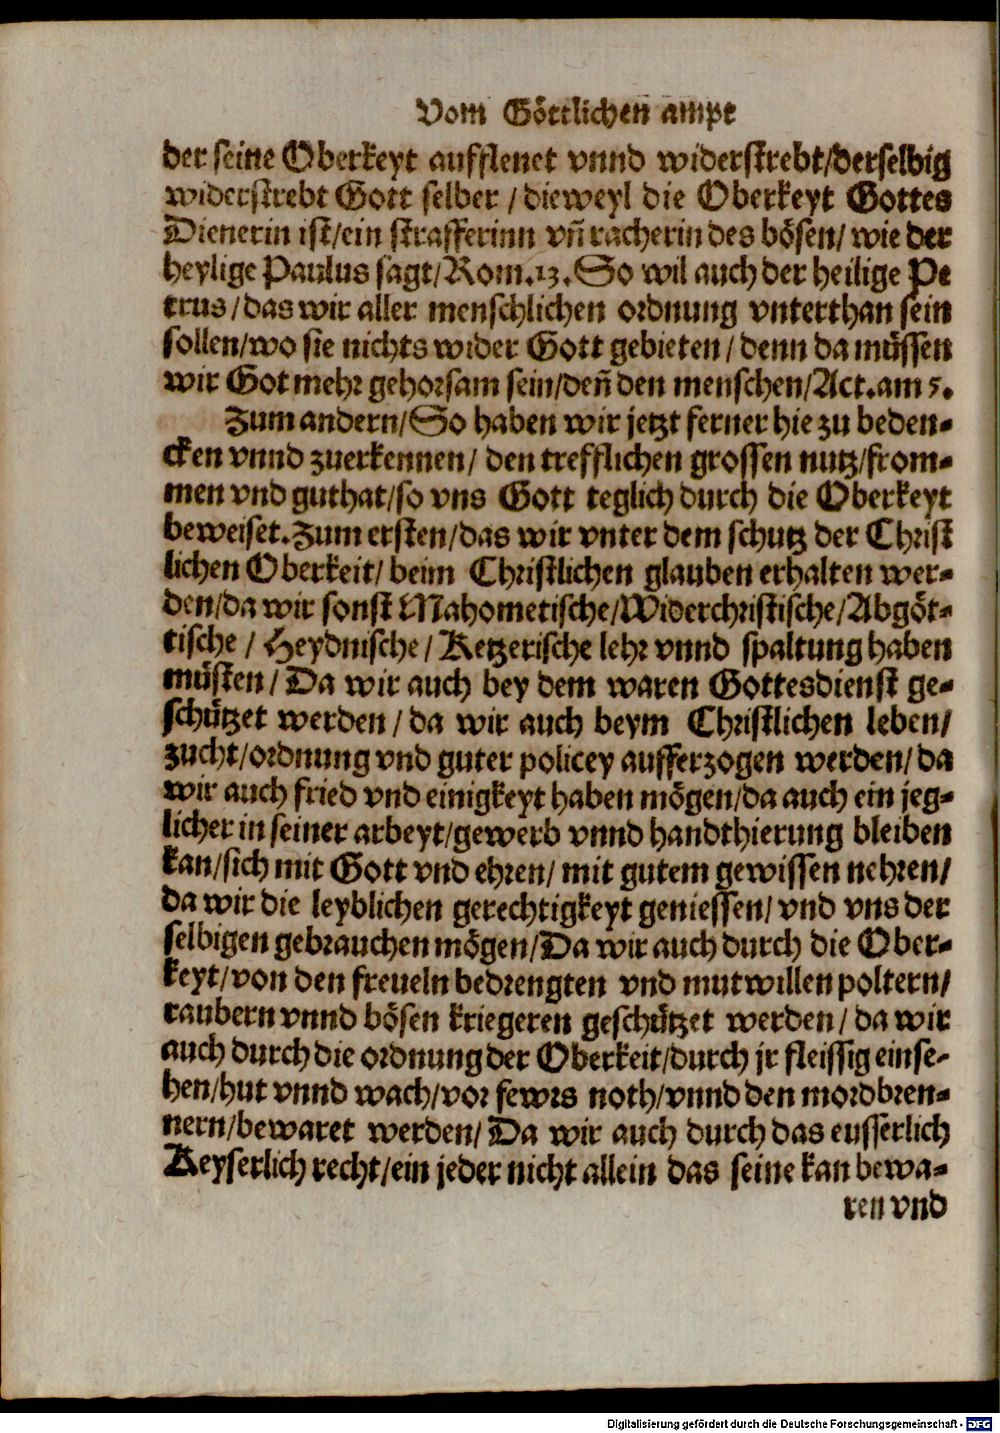 Vom Göttlichen ampt
der seine Oberkeyt aufflenet vnnd widerstrebt/derselbig
widerstrebt Gott selber / dieweyl die Oberkeyt Gottes
Dienerin ist/ein strafferinn vñ racherin des bösen/ wie der
heylige Paulus sagt/Rom.13. So wil auch der heilige Pe
trus/das wir aller menschlichen ordnung vnterthan sein
sollen/wo sie nichts wider Gott gebieten / denn da müssen
wir Got mehr gehorsam sein/deñ den menschen/Act.am 5.
Zum andern/So haben wir jetzt ferner hie zu beden-
cken vnnd zuerkennen/ den trefflichen grossen nutz/from-
men vnd guthat/so vns Gott teglich durch die Oberkeyt
beweiset.Zum ersten/das wir vnter dem schutz der Christ
lichen Oberkeit/ beim Christlichen glauben erhalten wer-
den/da wir sonst Mahometische/Widerchristische/Abgöt-
tische / Heydnische / Ketzerische lehr vnnd spaltung haben
müsten / Da wir auch bey dem waren Gottesdienst ge-
schützet werden / da wir auch beym Christlichen leben/
zucht/ordnung vnd guter policey aufferzogen werden/ da
wir auch fried vnd einigkeyt haben mögen/da auch ein jeg-
licher in seiner arbeyt/gewerb vnnd handthierung bleiben
kan/sich mit Gott vnd ehren/ mit gutem gewissen nehren/
da wir die leyblichen gerechtigkeyt geniessen/ vnd vns der
selbigen gebrauchen mögen/Da wir auch durch die Ober-
keyt/von den freueln bedrengten vnd mutwillen poltern/
raubern vnnd bösen kriegeren geschützet werden / da wir
auch durch die ordnung der Oberkeit/durch jr fleissig einse-
hen/hut vnnd wach/vor fewrs noth/vnnd den mordbren-
nern/bewaret werden/ Da wir auch durch das eusserlich
Keyserlich recht/ein jeder nicht allein das seine kan bewa-
ren vnd
Digitalisierung gefördert durch die Deutsche Forschungsgemeinschaft - DFG